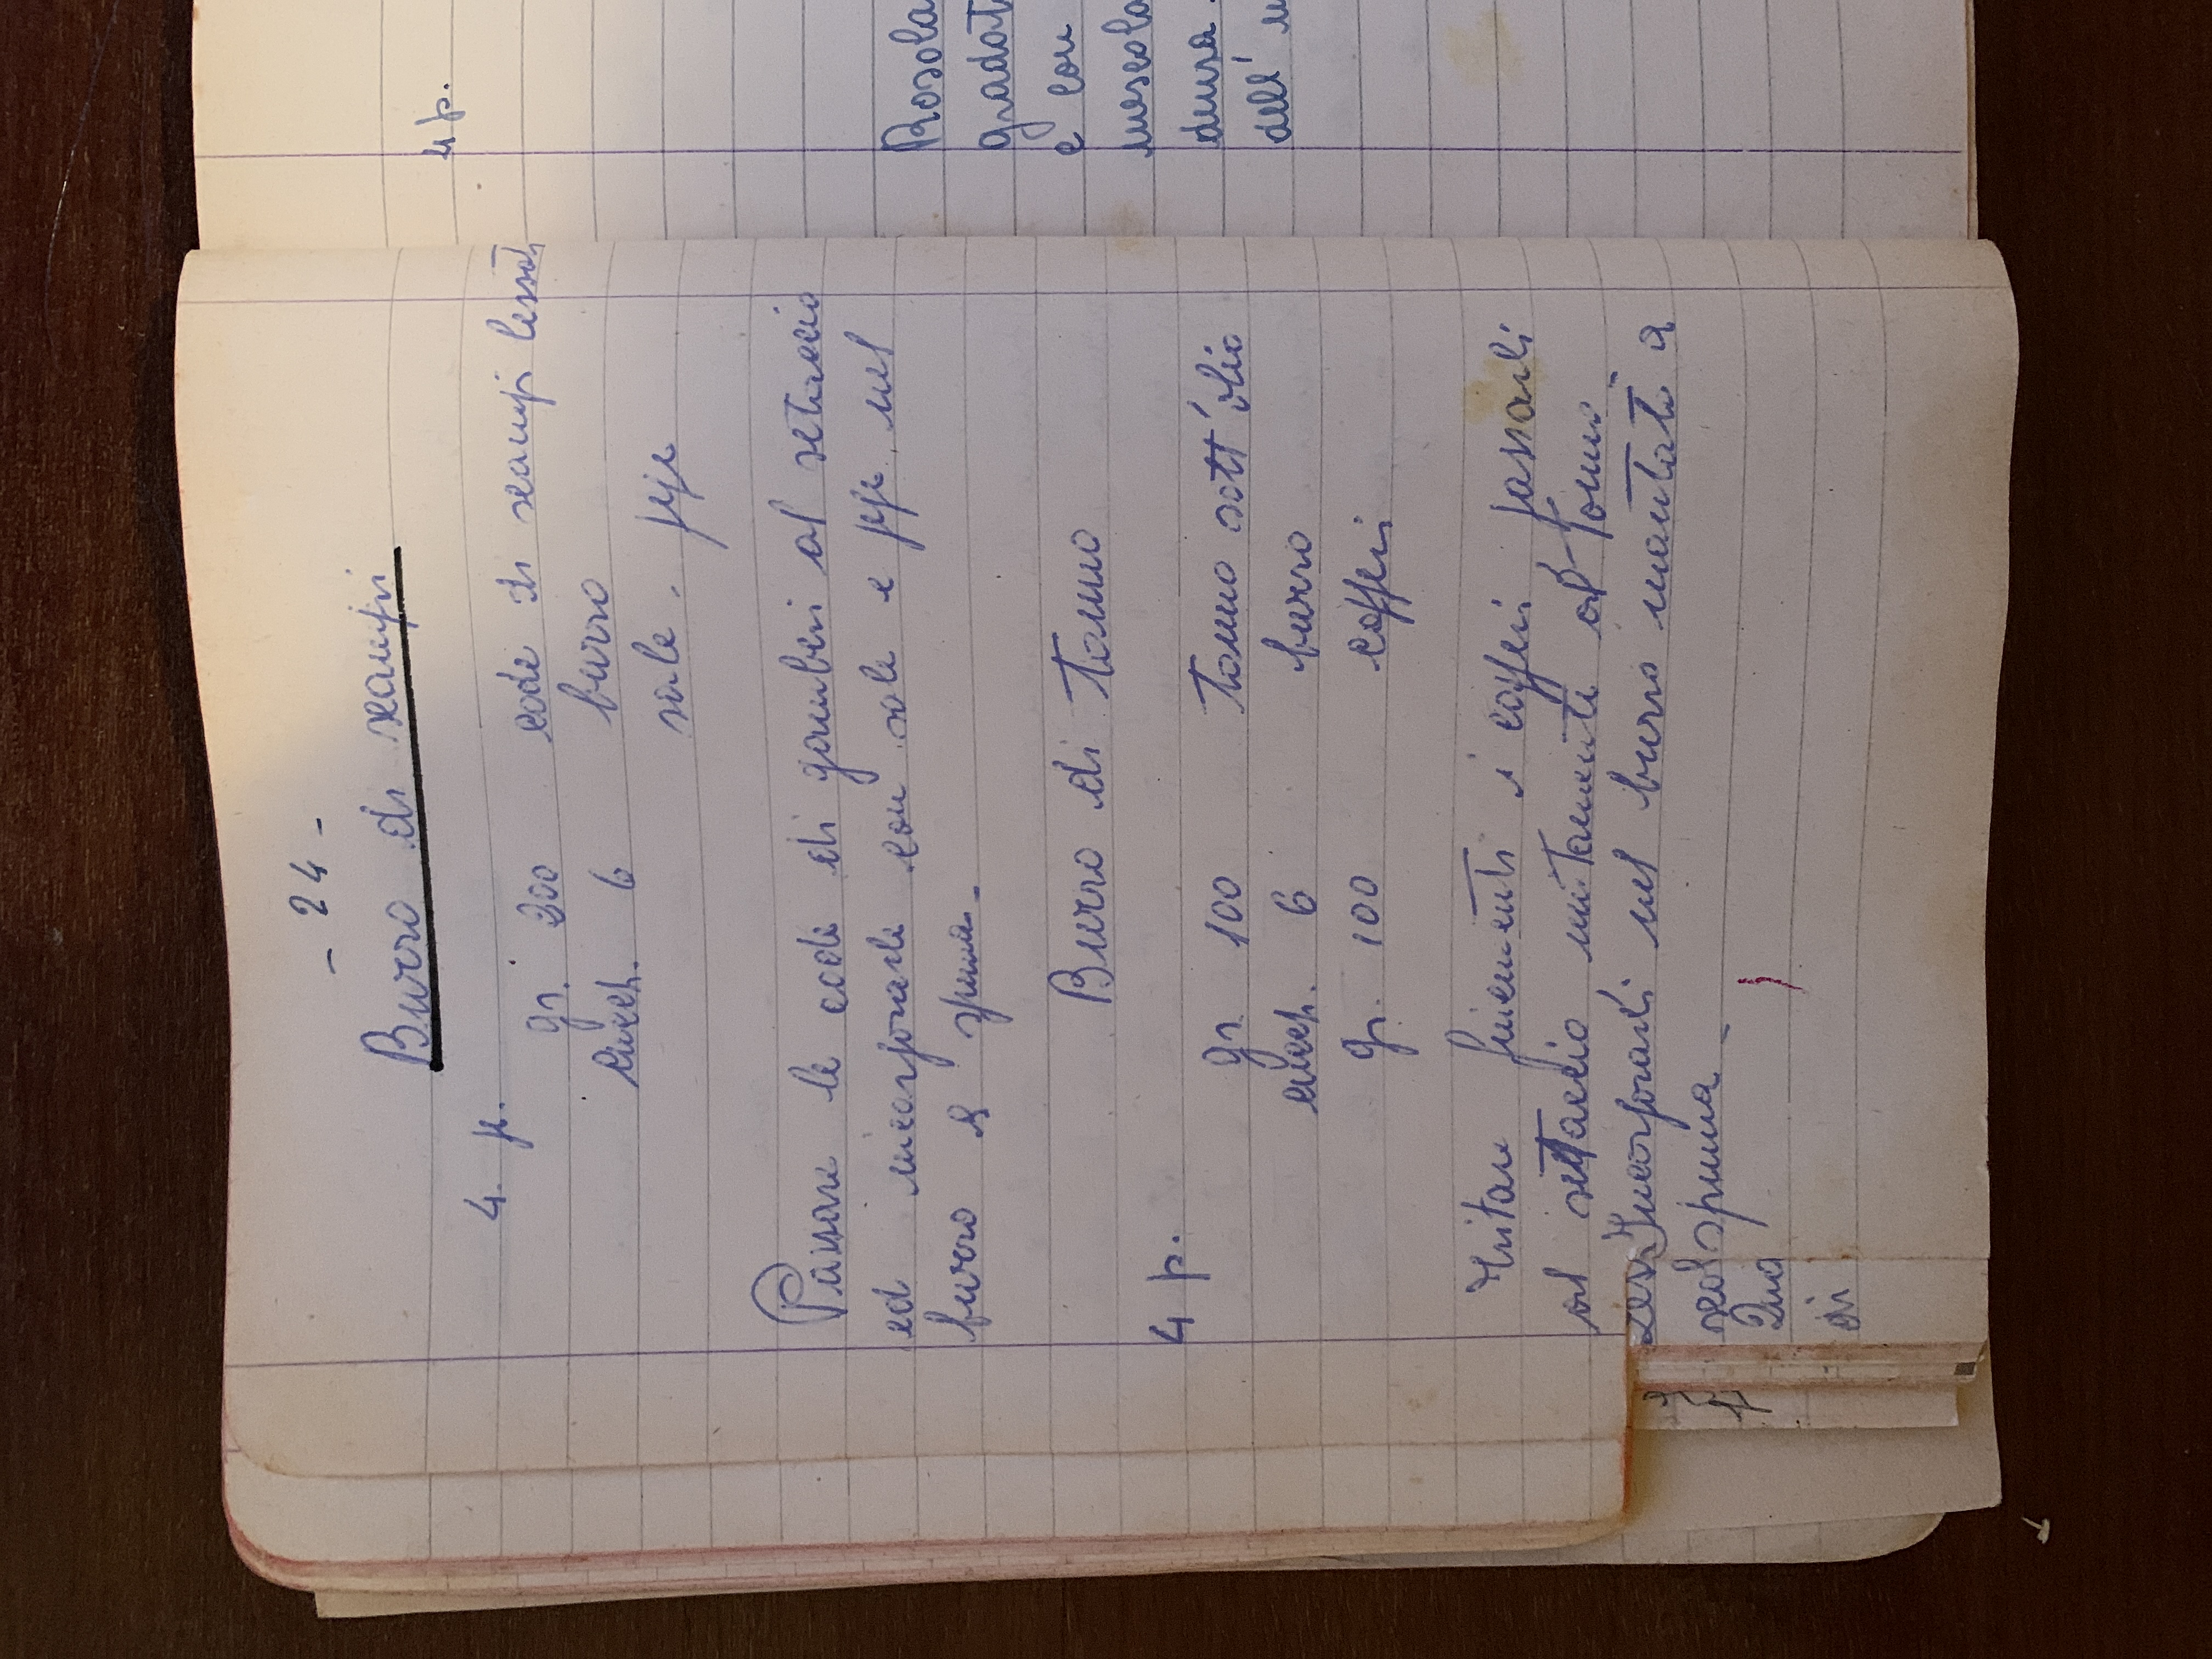 - 24 -
Burro di scampi
4. p.
gr. 200 code di scampi lessati
cucch. 6 burro
sale - pepe
Passare le code di gamberi al setaccio
ed incorporarle con sale e pepe nel
burro a spuma -
Burro di tonno
4 p.
gr. 100 tonno sott'olio
cucch. 6 burro
gr. 100 capperi
Tritare finementi i capperi, passarli
al settaccio, unitamente al tonno -
Incorporarli nel burro montato a
spuma -
di
4 p.
Rosola
gradat
e con
mescola
densa.
dell'